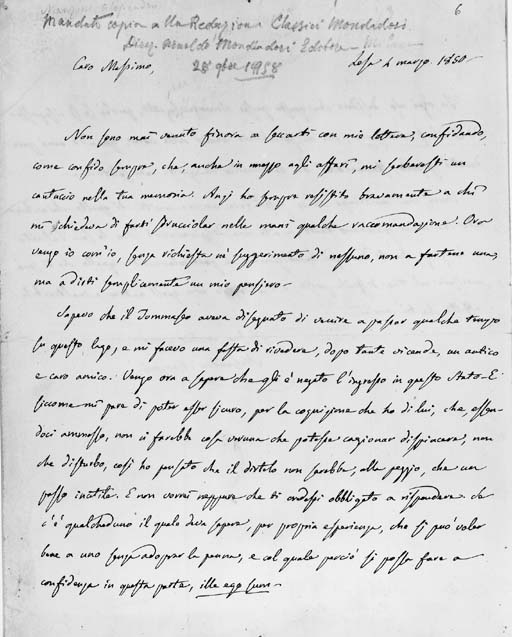 6
Mandata copia alla Redazione Classici Mondadori
Arnoldo Mondadori Editore - Milano
25 9bre 1958
Caro Massimo, Lesa 4 marzo 1850
Non sono mai venuto finora a seccarti con mie lettere, confidando,
come confido sempre, che, anche in mezzo agli affari, mi serberesti un
cantuccio nella tua memoria. Anzi ho sempre resistito bravamente a chi
mi chiedeva di farti sdrucciolar nelle mani qualche raccomandazione. Ora
vengo io com'io, senza richiesta nè suggerimento di nessuno, non a fartene una,
ma a dirti semplicemente un mio pensiero -
Sapevo che il Tommaseo aveva disegnato di venire a passar qualche tempo
su questo lago, e mi facevo una festa di rivedere, dopo tante vicende, un antico
e caro amico. Vengo ora a sapere che gli è negato l'ingresso in questo Stato - E
siccome mi pare di poter esser sicuro, per la cognizione che ho di lui, che, essen-
doci ammesso, non ci farebbe cosa veruna che potesse cagionar dispiacere, non
che disturbo, così ho pensato che il dirtelo non sarebbe, alla peggio, che un
passo inutile. E non vorrei neppure che ti credessi obbligato a rispondere chè
c'è qualcheduno il quale deve sapere, per propria esperienza, che si può voler
bene a uno senza adoprar la penna, e col quale perciò si possa fare a
confidenza in questa parte, ille ego sum -